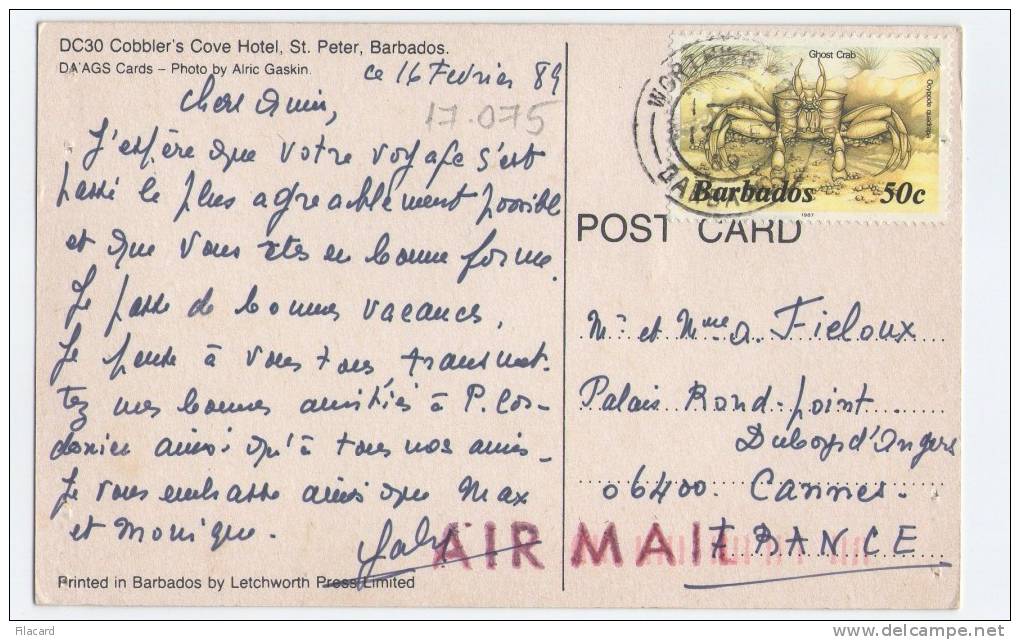 DC30 Cobbler's Cove Hotel, St. Peter, Barbados.
DA'AGS Cards – Photo by Alric Gaskin.
ce 16 Fevrier 89
17.075
Chers Amis,
J'espère que votre voyage s'est
passé le plus agréablement possible
et que vous êtes en bonne forme.
Je passe de bonnes vacances.
Je pense à vous tous, transmet-
tez mes bonnes amitiés à P.
ainsi qu'à tous nos amis.
Je vous embrasse ainsi que Max
et Monique.
Printed in Barbados by Letchworth Press Limited
Ghost Crab
Ocypode quadrata
Barbados 50c
1987
WORTHING
POST CARD
Mr et Mme A. Fieloux
Palais Rond-point
Duboys d'Angers
06400. Cannes.
FRANCE
AIR MAIL
Filacard
delcampe.net